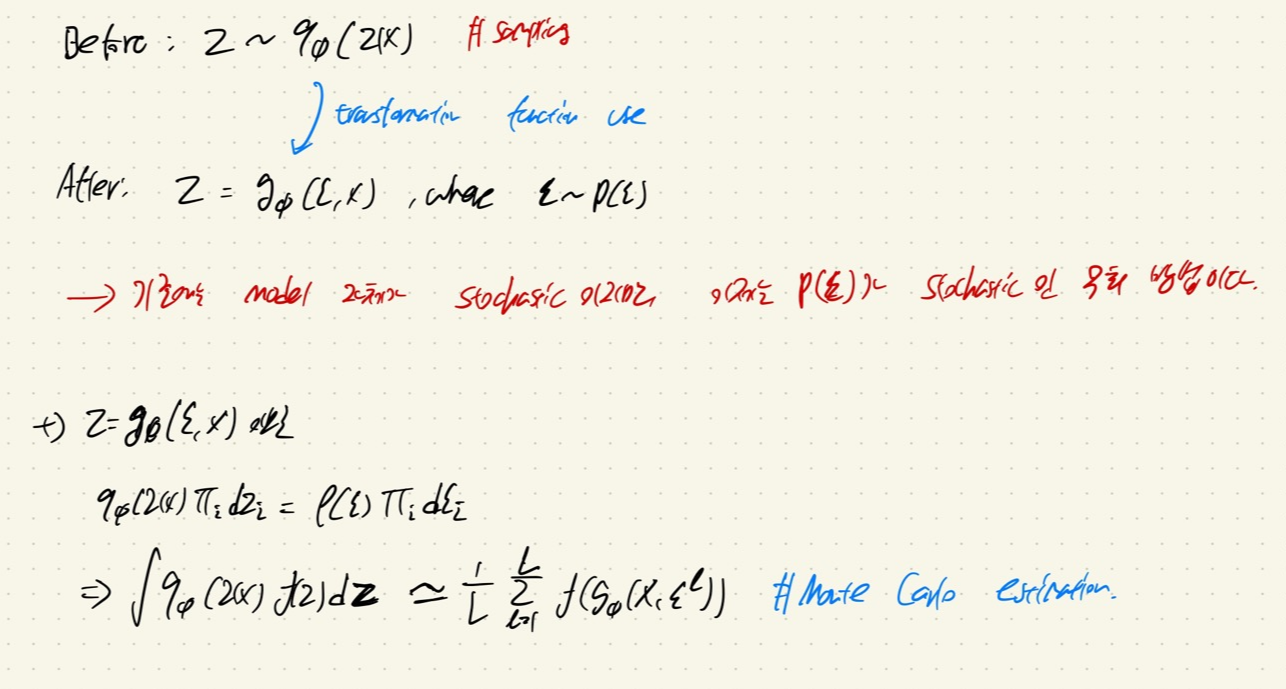 Before : z ~ qφ(z|x) # sampling
transformation function use
After: z = gφ(ε, x) , where ε ~ p(ε)
→ 기존에는 model 자체가 stochastic 이였다면, 이제는 p(ε)가 stochastic 인 우회 방법이다.
+) z = gφ(ε, x)
qφ(z|x) Πᵢ dzᵢ = p(ε) Πᵢ dεᵢ
⇒ ∫ qφ(z|x) f(z) dz ≃ 1/L Σ_{l=1}^{L} f(gφ(x, ε^l)) # Monte Carlo estimation.